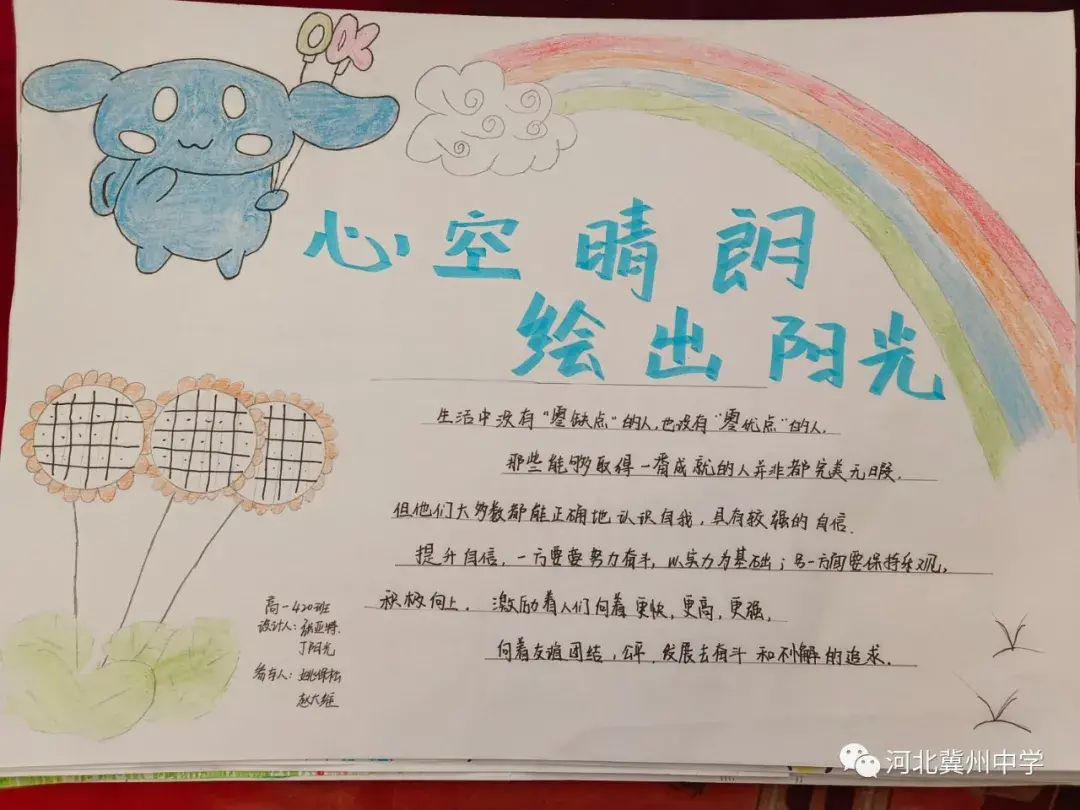 OK
心空晴朗
绘出阳光
生活中没有"零缺点"的人,也没有"零优点"的人.
那些能够取得一番成就的人并非都完美无暇.
但他们大多数都能正确地认识自我,具有较强的自信.
提升自信,一方要要努力奋斗,以实力为基础;另一方面要保持乐观,
积极向上. 激励着人们向着更快,更高,更强,
向着友谊团结,公平,发展去奋斗和不懈的追求.
高一420班
设计人:张亚特.
丁阳光
参与人:姚保松
赵大雄
河北冀州中学